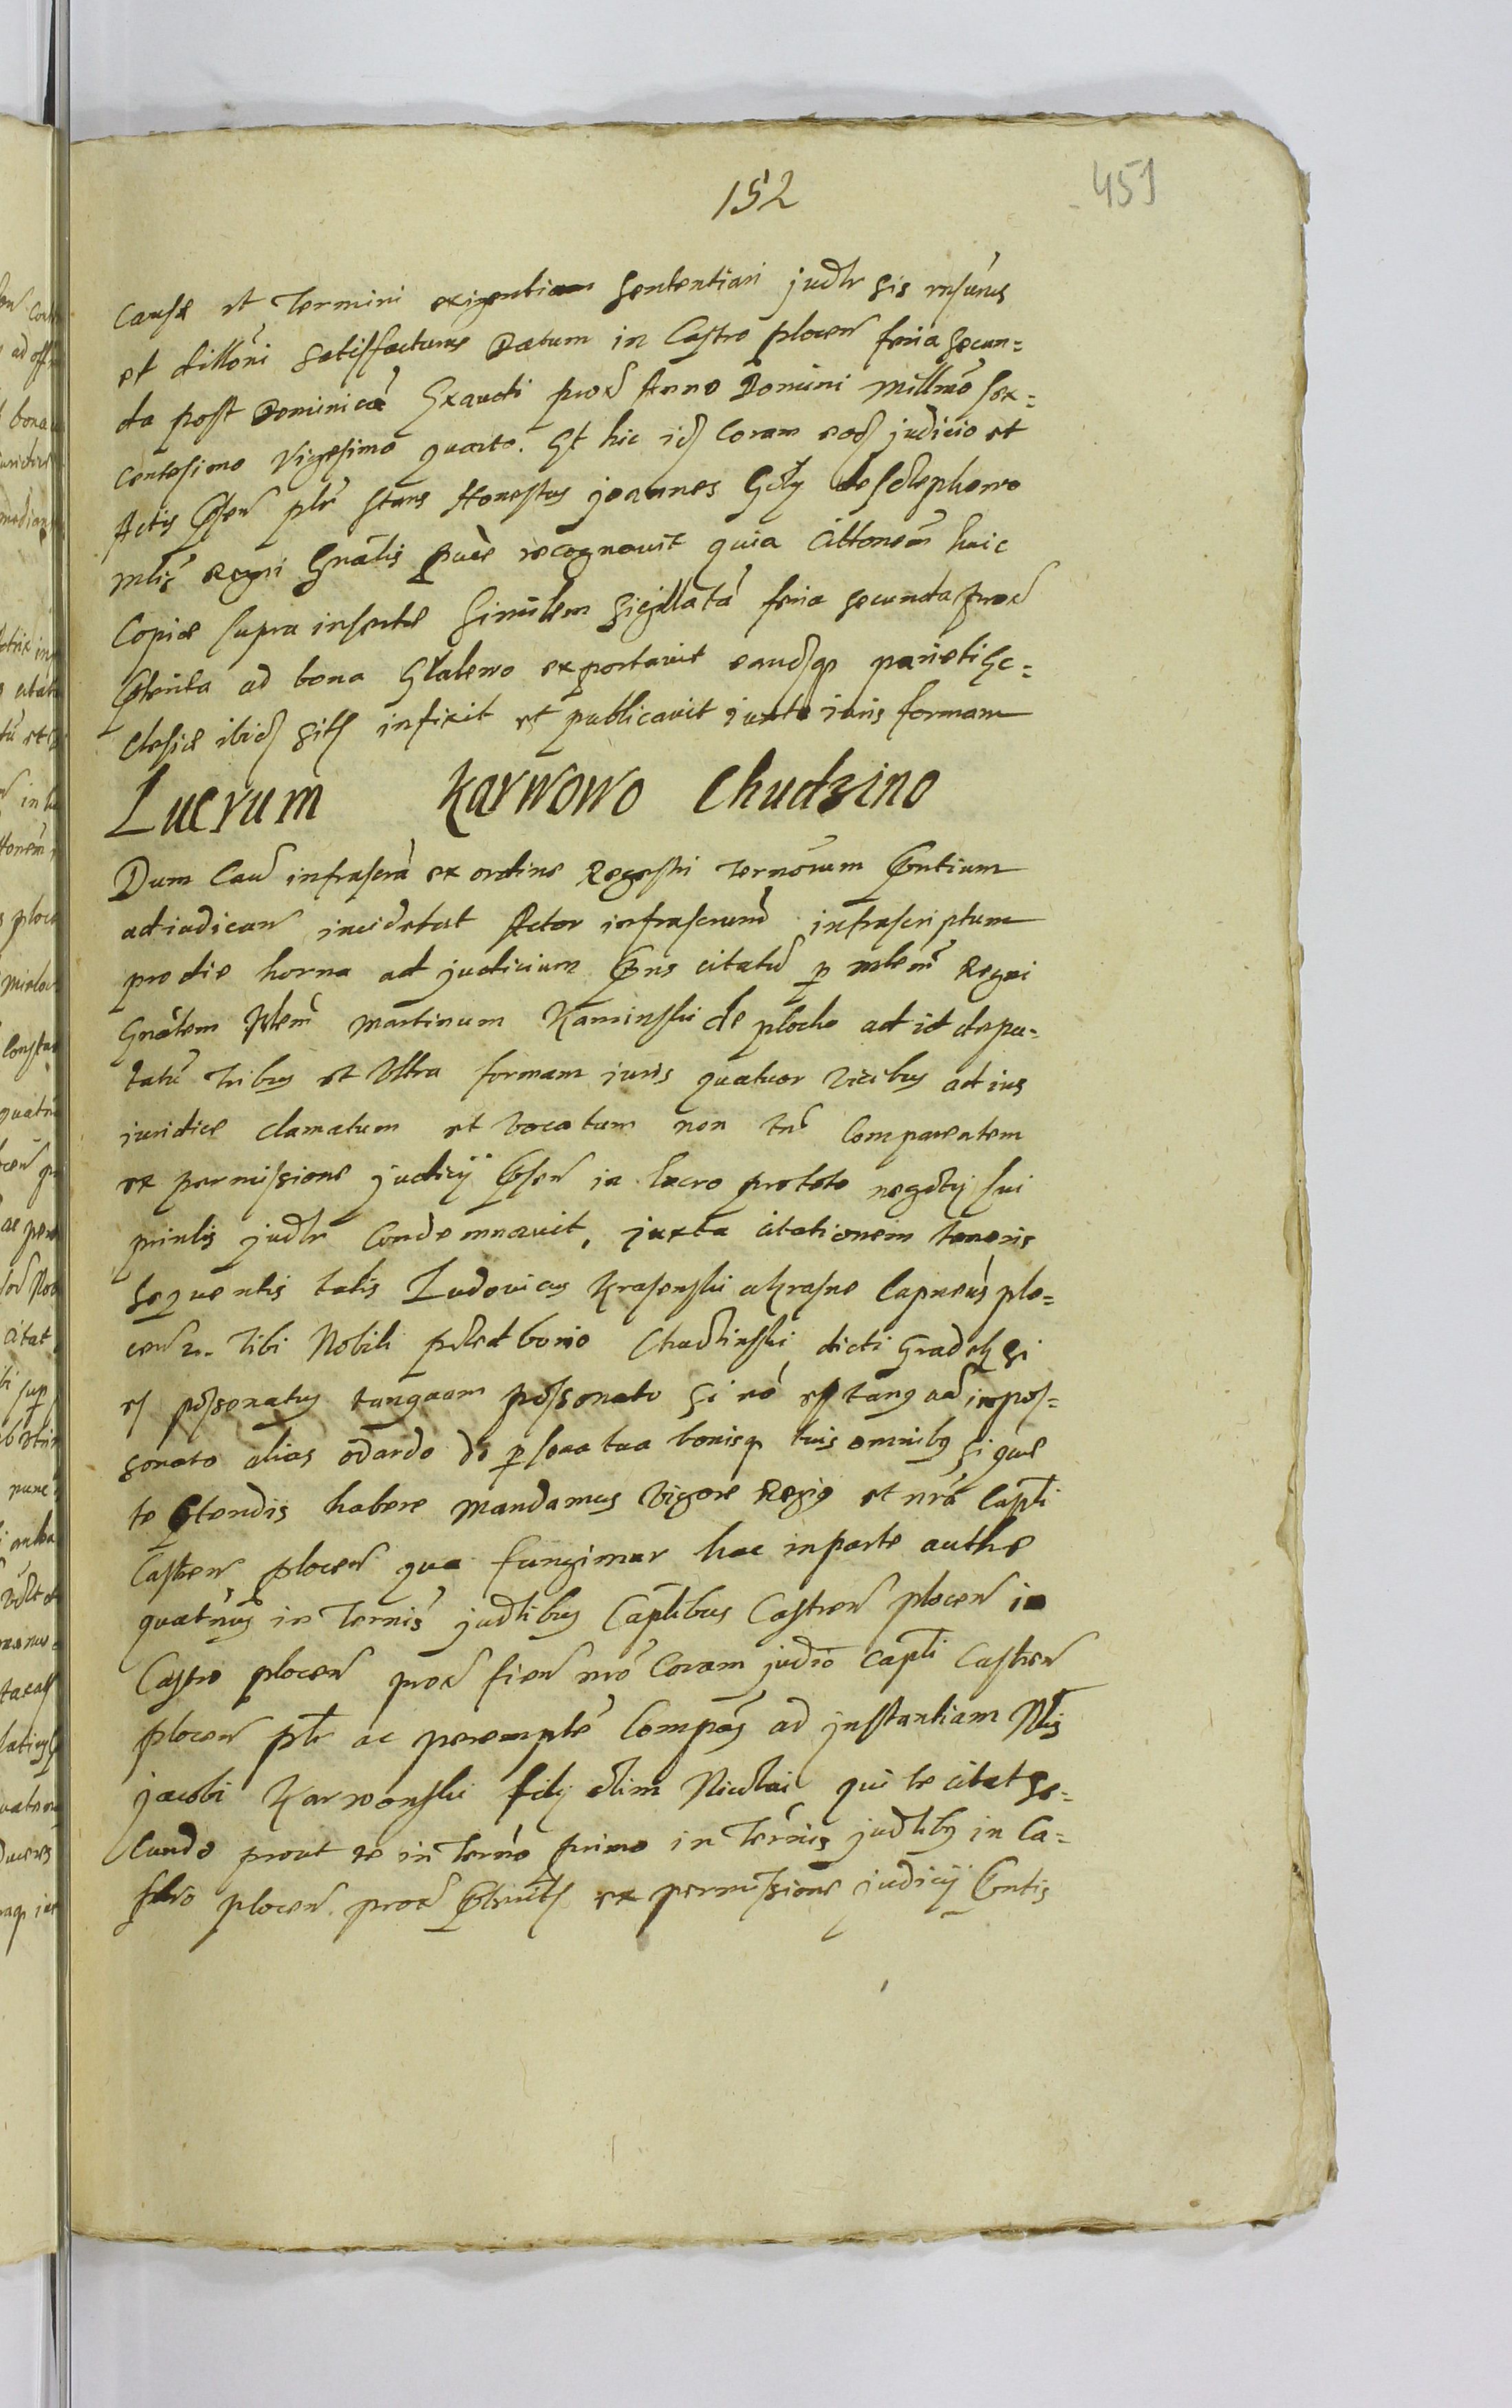 152
451
Causæ et Termini exigentiam sententiari judlr sis rnsurus
et dilloni satisfacturus Datum in Castro plocen feria secun=
da post Dominica Exaudi prox Anno Domini Millmo sex=
centesimo Vigesimo quarto. Et hic id coram eod judicio et
Actis psen plr stans Honestus joannes de
mlis Regni Gnalis recognovit quia Cittonem huic
Copiæ supra insertæ similem sigillata feria secunda prox
pterita ad bona exportavit eandqp parieti Ec=
clesiæ ibid sits infixit et publicavit juxta iuris formam
Lucrum Karwowo Chudzino
Dum Cau infrascra ex ordine Regestri Ternorum pntium
adiudican incidebat Actor infrascrum infrascriptum
pro die horna ad judicium pns citatu p mlem Regni
Gnalem plem Martinum Kaminski de plocko ad id depu-
tatu tribus et Ultra formam iuris quatuor vicibus ad ius
iuridice clamatum et vocatum non tn Comparentem
ex permissione judicij psen in lucro pro toto negotij sui
prinlis judlr Condemnavit, juxta citationem tenoris
sequentis talis Ludovicus Krasenski a Krasne Capneus plo=
cen r. Tibi Nobili predbonio Chudzinski dicti Gradek si
es possonatus tanquam possonato si no es tanq impos=
sonato alias odardo de psona tua bonisqp tuis omnibus si quæ
te ptendis habere mandamus vigore Regio et nra Capti
Castren plocen qua fungimur hac in parte authe
quatnus in Ternis judlibus Captlibus Castren plocen in
Castro plocen prox fien nro Coram judio capti Castren
plocen plr ac perempte Compas ad jnstantiam Nlis
jacobi Karwowski filij olim Nicolai qui te citat se=
cundo prout te in Terno primo in Ternis judlibus in Ca=
stro plocen prox ptrits ex permissione judicij pntis